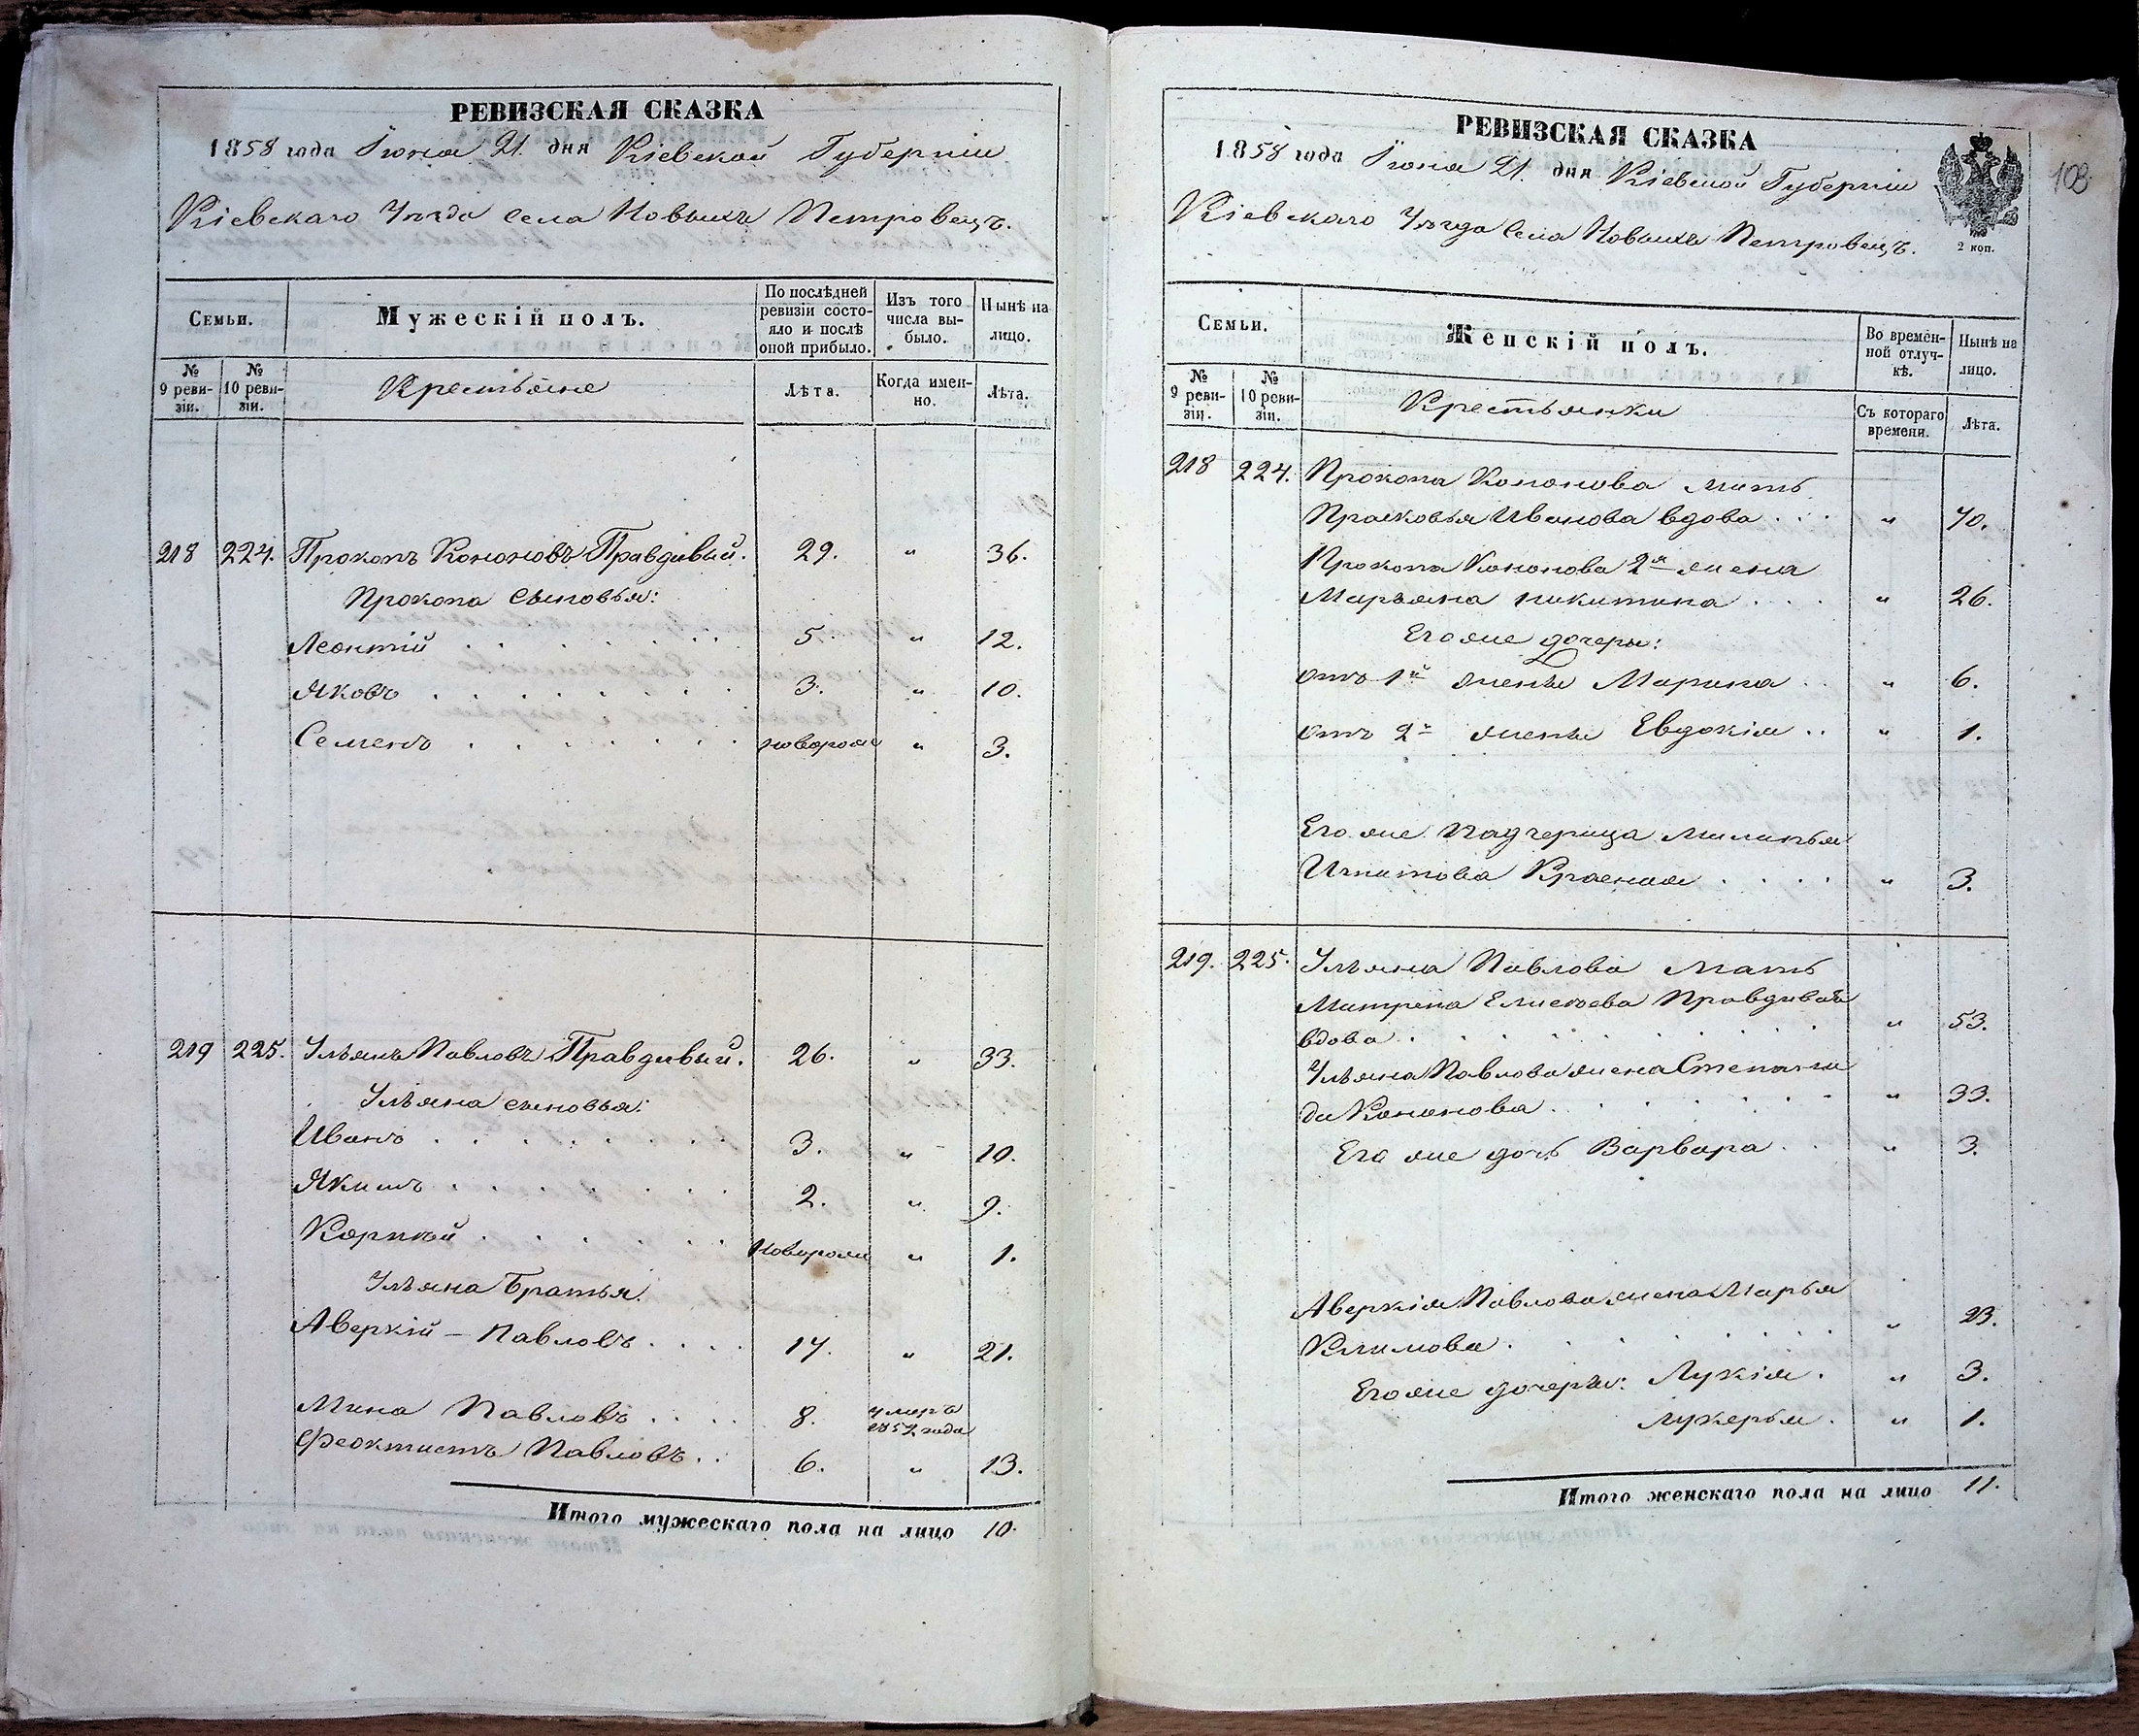 РЕВИЗСКАЯ СКАЗКА
1858 года Іюня 21 дня Кіевской Губерніи
Кіевскаго Уѣзда Села Новыхъ Петровецъ.
Семьи.
Мужескій полъ.
По послѣдней ревизіи состояло и послѣ оной прибыло.
Изъ того числа выбыло.
Нынѣ на лицо.
№ 9 ревизіи.
№ 10 ревизіи.
Крестьяне
Лѣта.
Когда именно.
Лѣта.
218 224. Прокопъ Кононовъ Правдивый. 29. " 36.
Прокопа сыновья:
Леонтій . . . . . . 5. " 12.
Яковъ . . . . . . 3. " 10.
Семенъ . . . . . . новорож " 3.
219 225. Ульянъ Павловъ Правдивый. 26. " 33.
Ульяна сыновья:
Иванъ . . . . . . 3. " 10.
Якимъ . . . . . . 2. " 9.
Корнѣй . . . . . . новорож " 1.
Ульяна Братья.
Аверкій - Павловъ . . . . 14. " 21.
Мина Павловъ . . . . 8. умеръ 1852 года
Феоктистъ Павловъ . . 6. " 13.
Итого мужескаго пола на лицо 10.
РЕВИЗСКАЯ СКАЗКА
1858 года Іюня 21. дня Кіевской Губерніи
Кіевскаго Уѣзда Села Новыхъ Петровецъ.
2 коп.
103.
Семьи.
Женскій полъ.
Во временной отлучкѣ.
Нынѣ на лицо.
№ 9 ревизіи.
№ 10 ревизіи.
Крестьянки
Съ котораго времени.
Лѣта.
218 224. Прокопа Кононова мать
Прасковья Иванова вдова . . . " 70.
Прокопа Кононова 2я жена
Марьяна Никитина . . . " 26.
Его же дочери:
отъ 1й жены Марина . . " 6.
отъ 2й жены Евдокія . . " 1.
Его же падчерица Миланья
Игнатова Красная . . . . " 3.
219. 225. Ульяна Павлова мать
Матрена Елисѣева Правдивая
вдова . . . . . . " 53.
Ульяна Павлова жена Степани
да Кононова . . . . . " 33.
Его же дочь Варвара . . " 3.
Аверкія Павлова жена Марья
Климова . . . . . " 23.
Его же дочери: Лукія . " 3.
Лукерья . " 1.
Итого женскаго пола на лицо 11.